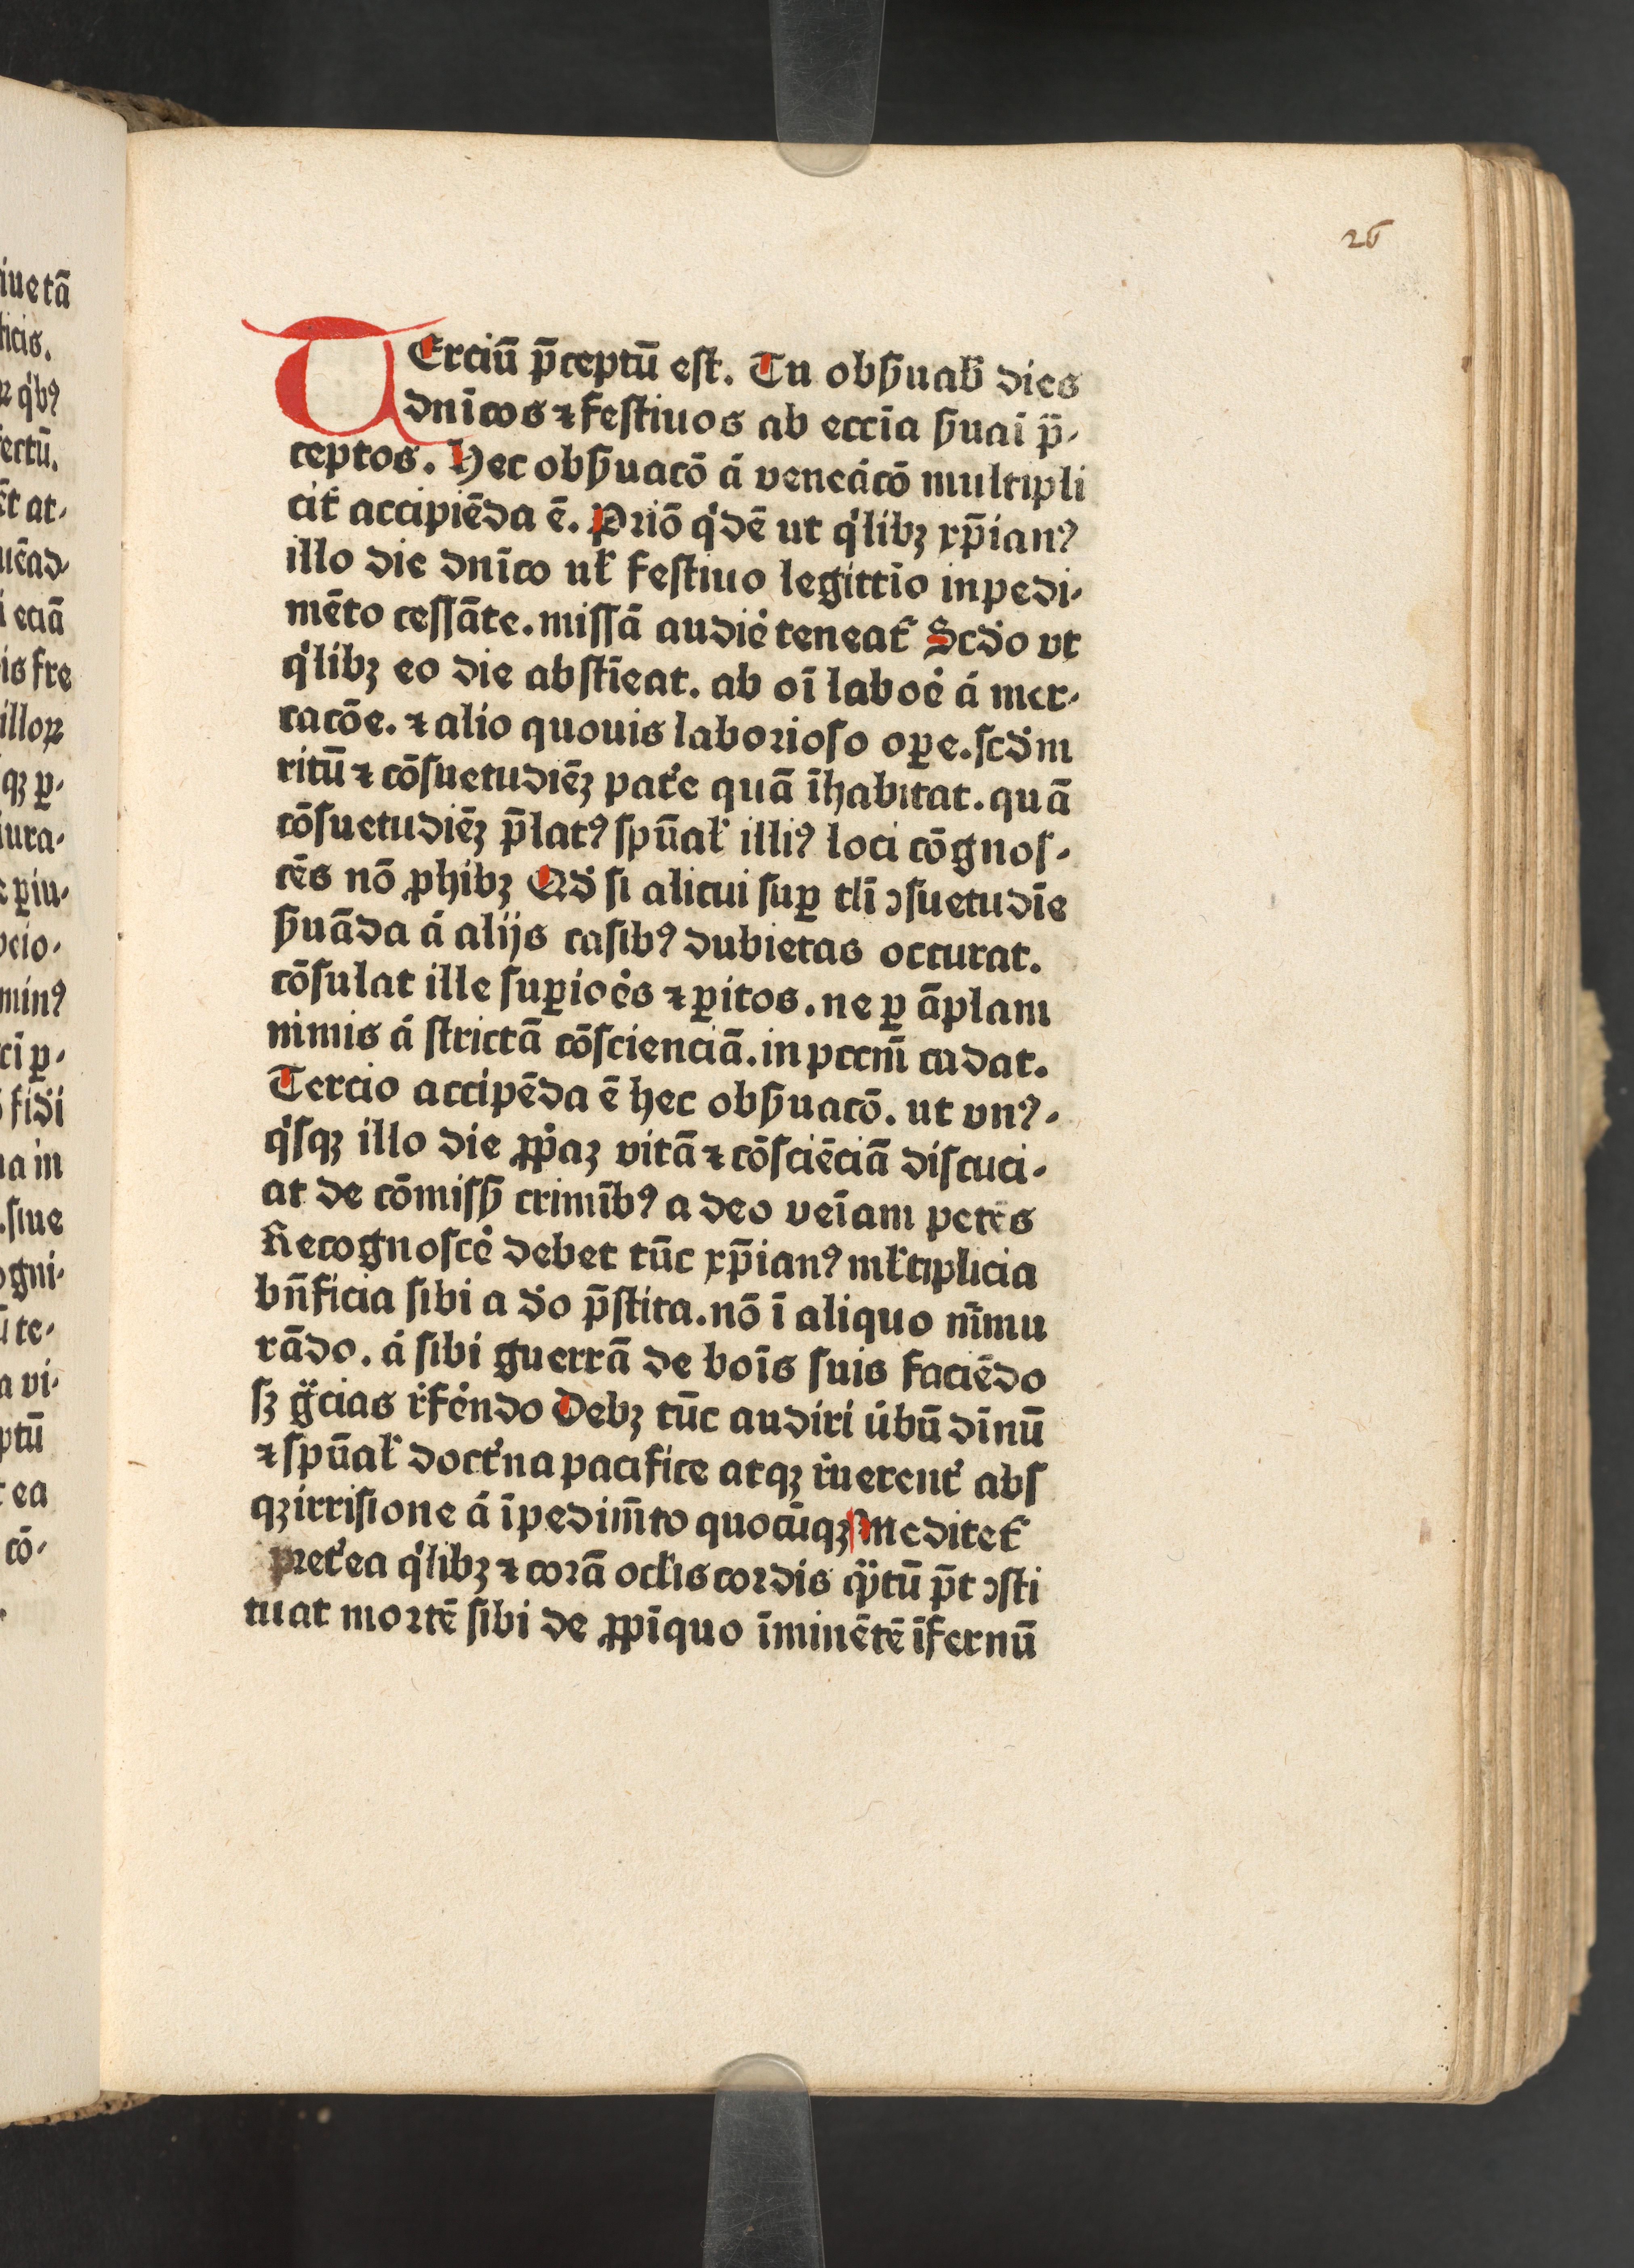 26
TErciū p̄ceptū est. Tu obẜuab̓ dies
dnīcos ⁊ festiuos ab eccīa ẜuaī p̄-
ceptos. Hec obẜuacō á veneácō multipli
cit̓ accipiēda ē. Priō q̓dē ut q̓libꝫ xp̄ianꝰ
illo die dnīco ul̓ festiuo legittīo inpedi-
mēto cessāte. missā audiė teneat̓ Scd̓o vt
q̓libꝫ eo die abstīeat. ab oī laboė á mer-
cacōe. ⁊ alio quouis laborioso oꝑe. scd̓m
ritū ⁊ cōsuetudiēꝫ pat̓e quā īhabitat. quā
cōsuetudiēꝫ p̄latꝰ spūal̓ illiꝰ loci cōgnos-
cēs nō ꝓhibꝫ Qd̓ si alicui suꝑ tlī ↄsuetudīe
ẜuāda á alijs casibꝰ dubietas occurat.
cōsulat ille suꝑioės ⁊ ꝑitos. ne ꝑ āplam
nimis á strictā cōscienciā. in pccm̄ cadat.
Tercio accipēda ē hec obẜuacō. ut vnꝰ-
q̓sqꝫ illo die ꝓp̓aꝫ vitā ⁊ cōsciēciā discuci-
at de cōmisẜ crimībꝰ a deo veīam petēs
Recognoscė debet tūc xp̄ianꝰ ml̓tiplicia
bn̄ficia sibi a d̓o p̄stita. nō ī aliquo m̄mu
rādo. á sibi guerrā de boīs suis faciēdo
sꝫ g̈cias r̓fėndo Debꝫ tūc audiri u̓bū dīnū
⁊ spūal̓ doct̓na pacifice atqꝫ r̓uerent̓ abs
qꝫ irrisione á īpedim̄to quocūqꝫ Meditet̓
pret̓ea q̓libꝫ ⁊ corā ocl̓is cordis q̈̄tū p̄t ↄsti
tuat mortē sibi de ꝓpīquo īminētē īfernū